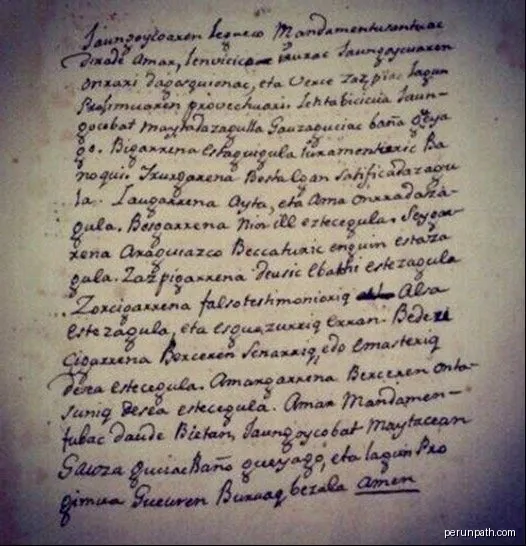 Jaungoycoaren legueco Mandamentusantuac
dirade Amar, lenvicico irurac Jaungoycuaren
onrrari dagosquionac, eta verce zazpiac lagun
Proximuaren provechurari. Lehtabicicua Jaun-
gocobat maytadazagulla Gauzaguciac baña gueya
go. Bigarrena estaguigula Juramenturic Ba
noqui. Irurgarrena Bestalgan Satificadazagu
la. Laugarrena Ayta, eta Ama onrradaza-
gula. Bosgarrena Nior ill eztecegula. Seygar-
rena Araguiazco Beccaturic enguin estaza
gula. Zazpigarrena deusic Ebathi estezagula
Zorcigarrena falsotestimonioriq Alsa
estezagula, eta esguezurriq erran. Bedera
cigarrena Berceren Senarriq, edo emasteriq
desea estecegula. Amargarrena Berceren onta-
suniq desea estecegula. Amar Mandamen-
tubac daude Bietan, Jaungoycobat Maytacean
Gauza guciac Baño gueyago, eta lagun Pro
gimua Gueuren Buruaq bezala amen
perunpath.com